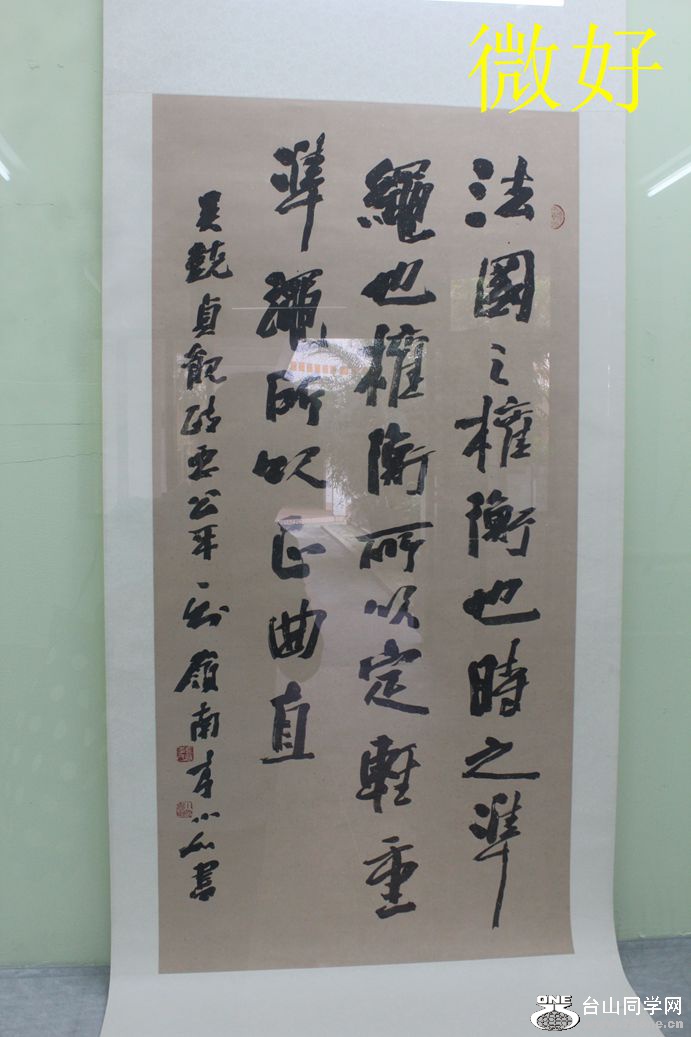 微好
法國之權衡也時之準
繩也權衡所以定輕重
準繩所以正曲直
吴兢貞觀政要公平一則嶺南李小書
ONE
台山同学网